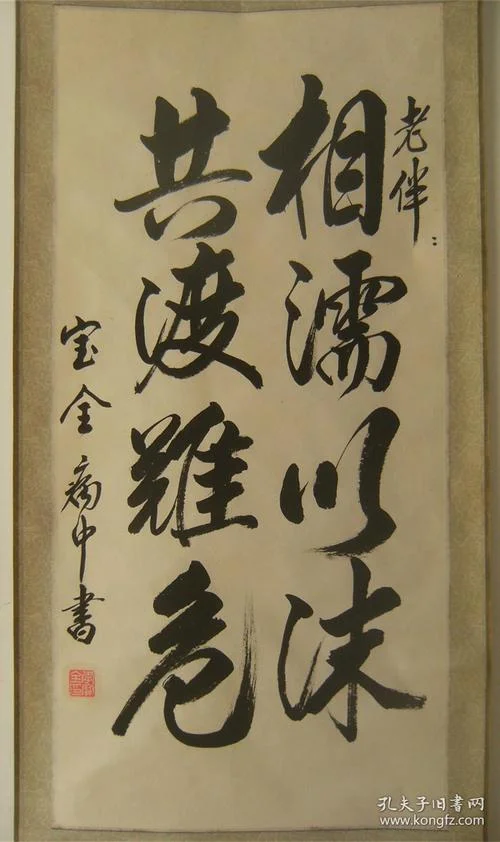 老伴：
相濡以沫
共渡難危
宝全病中書
孔夫子旧书网
www.kongfz.com